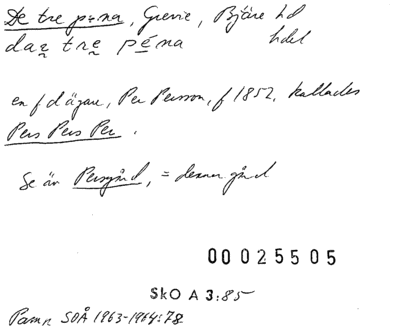 De tre pärna, Grevie, Bjäre hd
hdel
en f d ägare, Per Persson, f 1852, kallades
Pers Pers Per.
Se än Persgård, = denna gård
00025505
SkO A 3:85
Pamn SOÅ 1963-1964:78